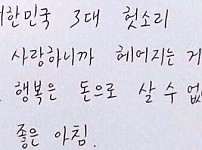 대한민국 3대 헛소리
사랑하니까 헤어지는 게
행복은 돈으로 살 수 없
좋은 아침.